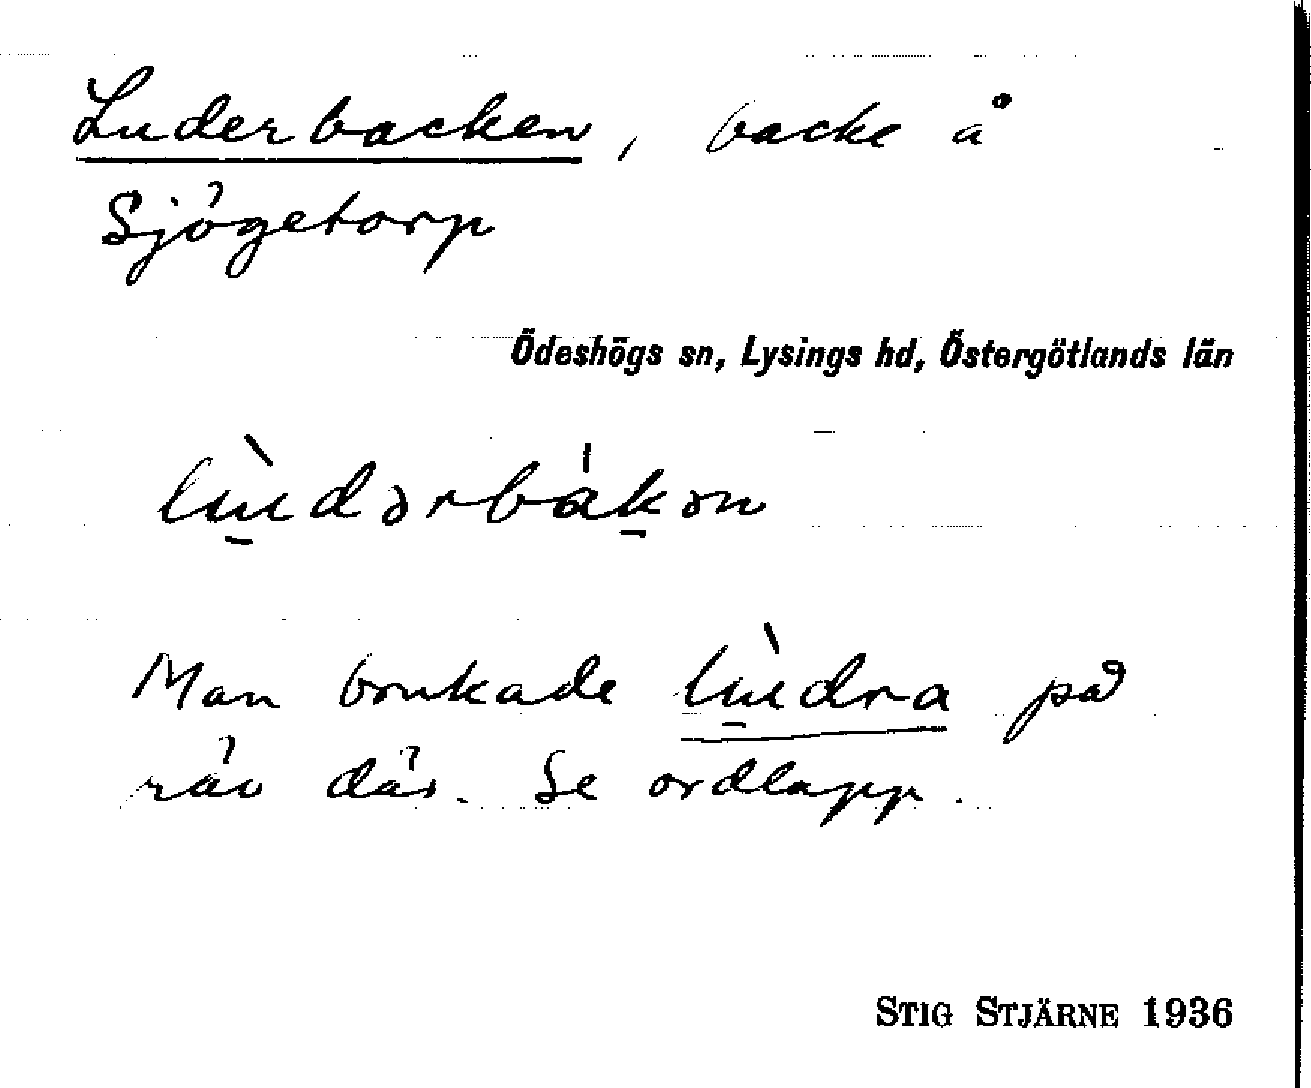 Luderbacken, backe å
Sjögetorp
Ödeshögs sn, Lysings hd, Östergötlands län
lù̱dərbáḵən
Man brukade lù̱dra på
räv där. Se ordlapp.
STIG STJÄRNE 1936